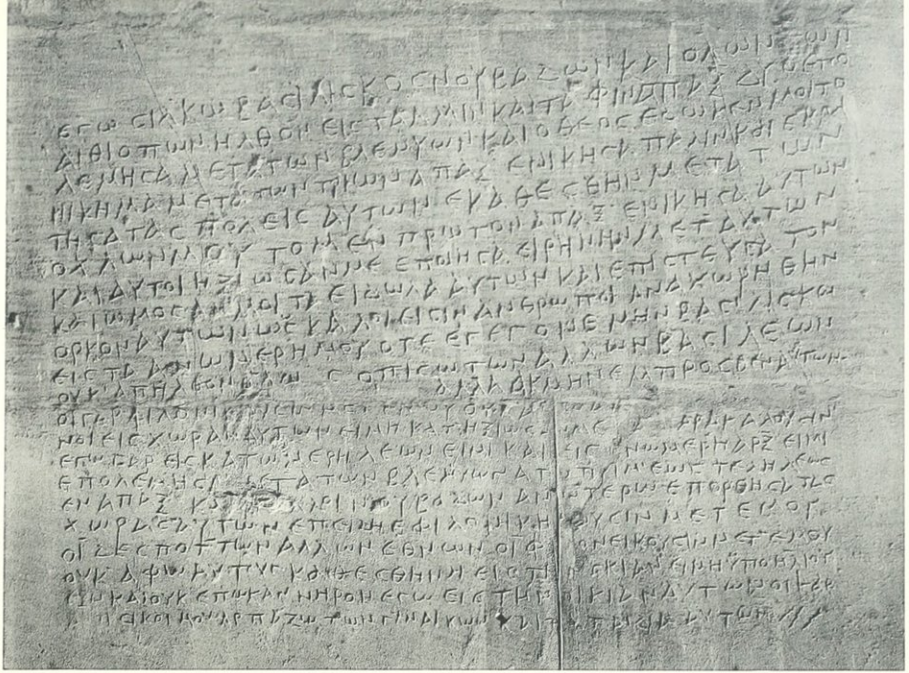 ΕΓΩ ϹΙΛΚΩ ΒΑϹΙΛΙϹΚΟϹ ΝΟΥΒΑΔΩΝ ΚΑΙ ΟΛΩΝ ΤΩΝ
ΑΙΘΙΟΠΩΝ ΗΛΘΟΝ ΕΙϹ ΤΑΛΜΙΝ ΚΑΙ ΤΑΦΙΝ ΑΠΑΞ ΔΥΟ ΕΠΟ
ΛΕΜΗϹΑ ΜΕΤΑ ΤΩΝ ΒΛΕΜΥΩΝ ΚΑΙ Ο ΘΕΟϹ ΕΔΩΚΕΝ ΜΟΙ ΤΟ
ΝΙΚΗΜΑ ΜΕΤΑ ΤΩΝ ΤΡΙΩΝ ΑΠΑΞ ΕΝΙΚΗϹΑ ΠΑΛΙΝ ΚΑΙ ΕΚΡΑ
ΤΗϹΑ ΤΑϹ ΠΟΛΕΙϹ ΑΥΤΩΝ ΕΚΑΘΕϹΘΗΝ ΜΕΤΑ ΤΩΝ
ΟΧΛΩΝ ΜΟΥ ΤΟ ΜΕΝ ΠΡΩΤΟΝ ΑΠΑΞ ΕΝΙΚΗϹΑ ΑΥΤΩΝ
ΚΑΙ ΑΥΤΟΙ ΗΞΙΩϹΑΝ ΜΕ ΕΠΟΙΗϹΑ ΕΙΡΗΝΗΝ ΜΕΤ ΑΥΤΩΝ
ΚΑΙ ΩΜΟϹΑΝ ΜΟΙ ΤΑ ΕΙΔΩΛΑ ΑΥΤΩΝ ΚΑΙ ΕΠΙϹΤΕΥϹΑ ΤΟΝ
ΟΡΚΟΝ ΑΥΤΩΝ ΩϹ ΚΑΛΟΙ ΕΙϹΙΝ ΑΝΘΡΩΠΟΙ ΑΝΑΧΩΡΗΘΗΝ
ΕΙϹ ΤΑ ΑΝΩ ΜΕΡΗ ΜΟΥ ΟΤΕ ΕΓΕΓΟΝΕΜΗΝ ΒΑϹΙΛΙϹΚΟϹ
ΟΥΚ ΑΠΗΛΘΟΝ ΟΛΩϹ ΟΠΙϹΩ ΤΩΝ ΑΛΛΩΝ ΒΑϹΙΛΕΩΝ
ΑΛΛΑ ΑΚΜΗΝ ΕΜΠΡΟϹΘΕΝ ΑΥΤΩΝ
ΟΙ ΓΑΡ ΦΙΛΟΝΙΚΟΥϹΙΝ ΜΕΤ ΕΜΟΥ ΟΥΚ
ΝΟΙ ΕΙϹ ΧΩΡΑΝ ΑΥΤΩΝ ΕΙ ΜΗ ΚΑΤΗΞΙΩϹΑΝ ΜΕ ΚΑΙ ΠΑΡΑΚΑΛΟΥϹΙΝ
ΕΓΩ ΓΑΡ ΕΙϹ ΚΑΤΩ ΜΕΡΗ ΛΕΩΝ ΕΙΜΙ ΚΑΙ ΕΙϹ ΑΝΩ ΜΕΡΗ ΑΡΞ ΕΙΜΙ
ΕΠΟΛΕΜΗϹΑ ΜΕΤΑ ΤΩΝ ΒΛΕΜΥΩΝ ΑΠΟ ΠΡΙΜ ΕΩϹ ΤΕΛΗΛΕΩϹ
ΕΝ ΑΠΑΞ ΚΑΙ ΟΙ ΑΛΛΟΙ ΝΟΥΒΑΔΩΝ ΑΝΩΤΕΡΩ ΕΠΟΡΘΗϹΑ ΤΑϹ
ΧΩΡΑϹ ΑΥΤΩΝ ΕΠΕΙΔΗ ΕΦΙΛΟΝΙΚΗϹΟΥϹΙΝ ΜΕΤ ΕΜΟΥ
ΟΙ ΔΕϹΠΟΤ ΤΩΝ ΑΛΛΩΝ ΕΘΝΩΝ ΟΙ ΦΙΛΟΝΕΙΚΟΥϹΙΝ ΜΕΤ ΕΜΟΥ
ΟΥΚ ΑΦΩ ΑΥΤΟΥϹ ΚΑΘΕϹΘΗΝΑΙ ΕΙϹ ΤΗΝ ϹΚΙΑΝ ΕΙ ΜΗ ΥΠΟ ΗΛΙΟΥ
ΕΞΩ ΚΑΙ ΟΥΚ ΕΠΩΚΑΝ ΝΗΡΟΝ ΕϹΩ ΕΙϹ ΤΗΝ ΟΙΚΙΑΝ ΑΥΤΩΝ ΟΙ ΓΑΡ
ΜΟΥ ΑΡΠΑΖΩ ΤΩΝ ΓΥΝΑΙΚΩΝ ΚΑΙ ΤΑ ΠΑΙΔΙΑ ΑΥΤΩΝ